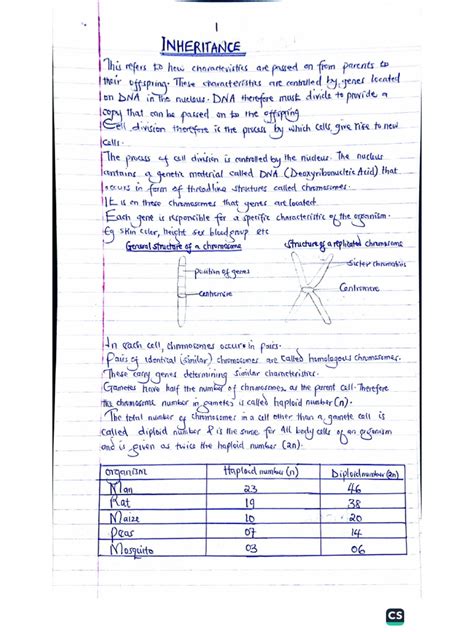 1
INHERITANCE
This refers to how characteristics are passed on from parents to
their offspring. These characteristics are controlled by genes located
on DNA in the nucleus. DNA therefore must divide to provide a
copy that can be passed on to the offspring
Cell division therefore is the process by which cells give rise to new
cells.
The process of cell division is controlled by the nucleus. The nucleus
contains a genetic material called DNA (Deoxyribonucleic Acid) that
occurs in form of threadlike structures called chromosomes.
It is on these chromosomes that genes are located.
Each gene is responsible for a specific characteristic of the organism.
Eg skin color, height sex blood group etc
General structure of a chromosome
Structure of a replicated chromosome
position of genes
Centromere
Sister chromatids
Centromere
In each cell, chromosomes occur in pairs.
Pairs of identical (similar) chromosomes are called homologous chromosomes.
These carry genes determining similar characteristics.
Gametes have half the number of chromosomes as the parent cell. Therefore
the chromosome number in gametes is called haploid number (n).
The total number of chromosomes in a cell other than a gamete cell is
called diploid number & is the same for all body cells of an organism
and is given as twice the haploid number (2n).
Organism Haploid number (n) Diploid number (2n)
Man 23 46
Rat 19 38
Maize 10 20
Peas 07 14
Mosquito 03 06
CS